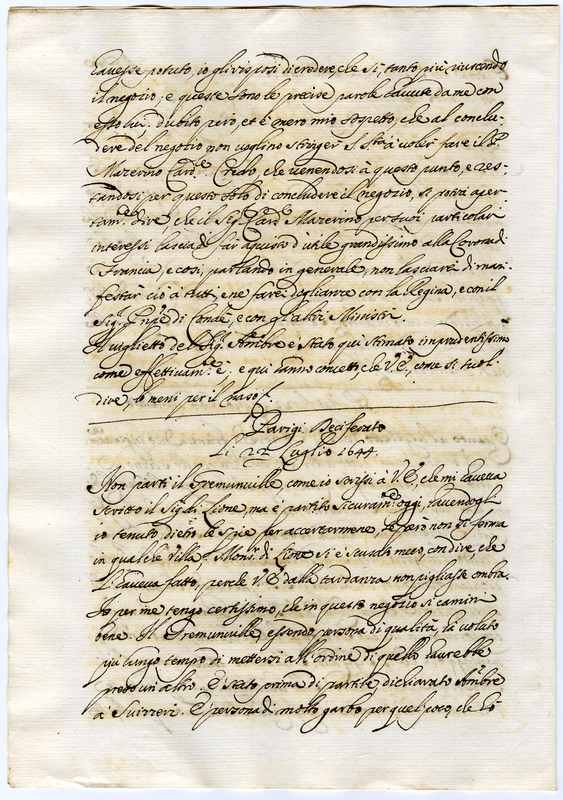 havesse potuto, io gli risposi di credere, che si, tanto più riuscendo
il negozio, e queste sono le precise parole havute da me con
esso lui. dubito però, et è mero mio sospetto, che al conclu-
dere del negotio non voglino stringer S. Sta à voler fare il Pre
Mazerino Carde. Credo, che venendosi à questo punto, e res-
tandosi per questo solo di concludere il negozio, si potrà aper-
tame dire, che il Sigr Carde Mazerino per suoi particolari
interessi lascia di far acquisto d'utile grandissimo alla Corona di
Francia, e così, parlando in generale, non lascierei di mani-
festar ciò à tutti, e ne farei doglianze con la Regina, e con il
Sigr Pripe di Condè, e con gl'altri Ministri.
Il viglietto del Sigr Ambre è stato qui stimato imprudentissimo
come effettivame è; e qui hanno concetto, che V.E., come si suol
dire, lo meni per il naso.
Parigi Deciferato
Li 22 Luglio 1644.
Non partì il Tremunville, come io scrissi à V.E., che mi haveva
scritto il Sigr di Lione, ma è partito sicurame oggi, havendogli
io tenuto dietro le spie per accertarmene, se però non si ferma
in qualche Villa. Monsr di Lione si è scusato meco, con dire, che
l'haveva fatto, perche V.E. dalla tardanza non pigliasse ombra.
Io per me tengo certissimo, che in questo negozio si camini
bene. Il Tremunville, essendo persona di qualità, hà voluto
più lungo tempo di mettersi all'ordine di quello haurebbe
preso un altro. È stato prima di partire dichiarato Ambre
à Suizzeri. È persona di molto garbo per quel poco, che hò